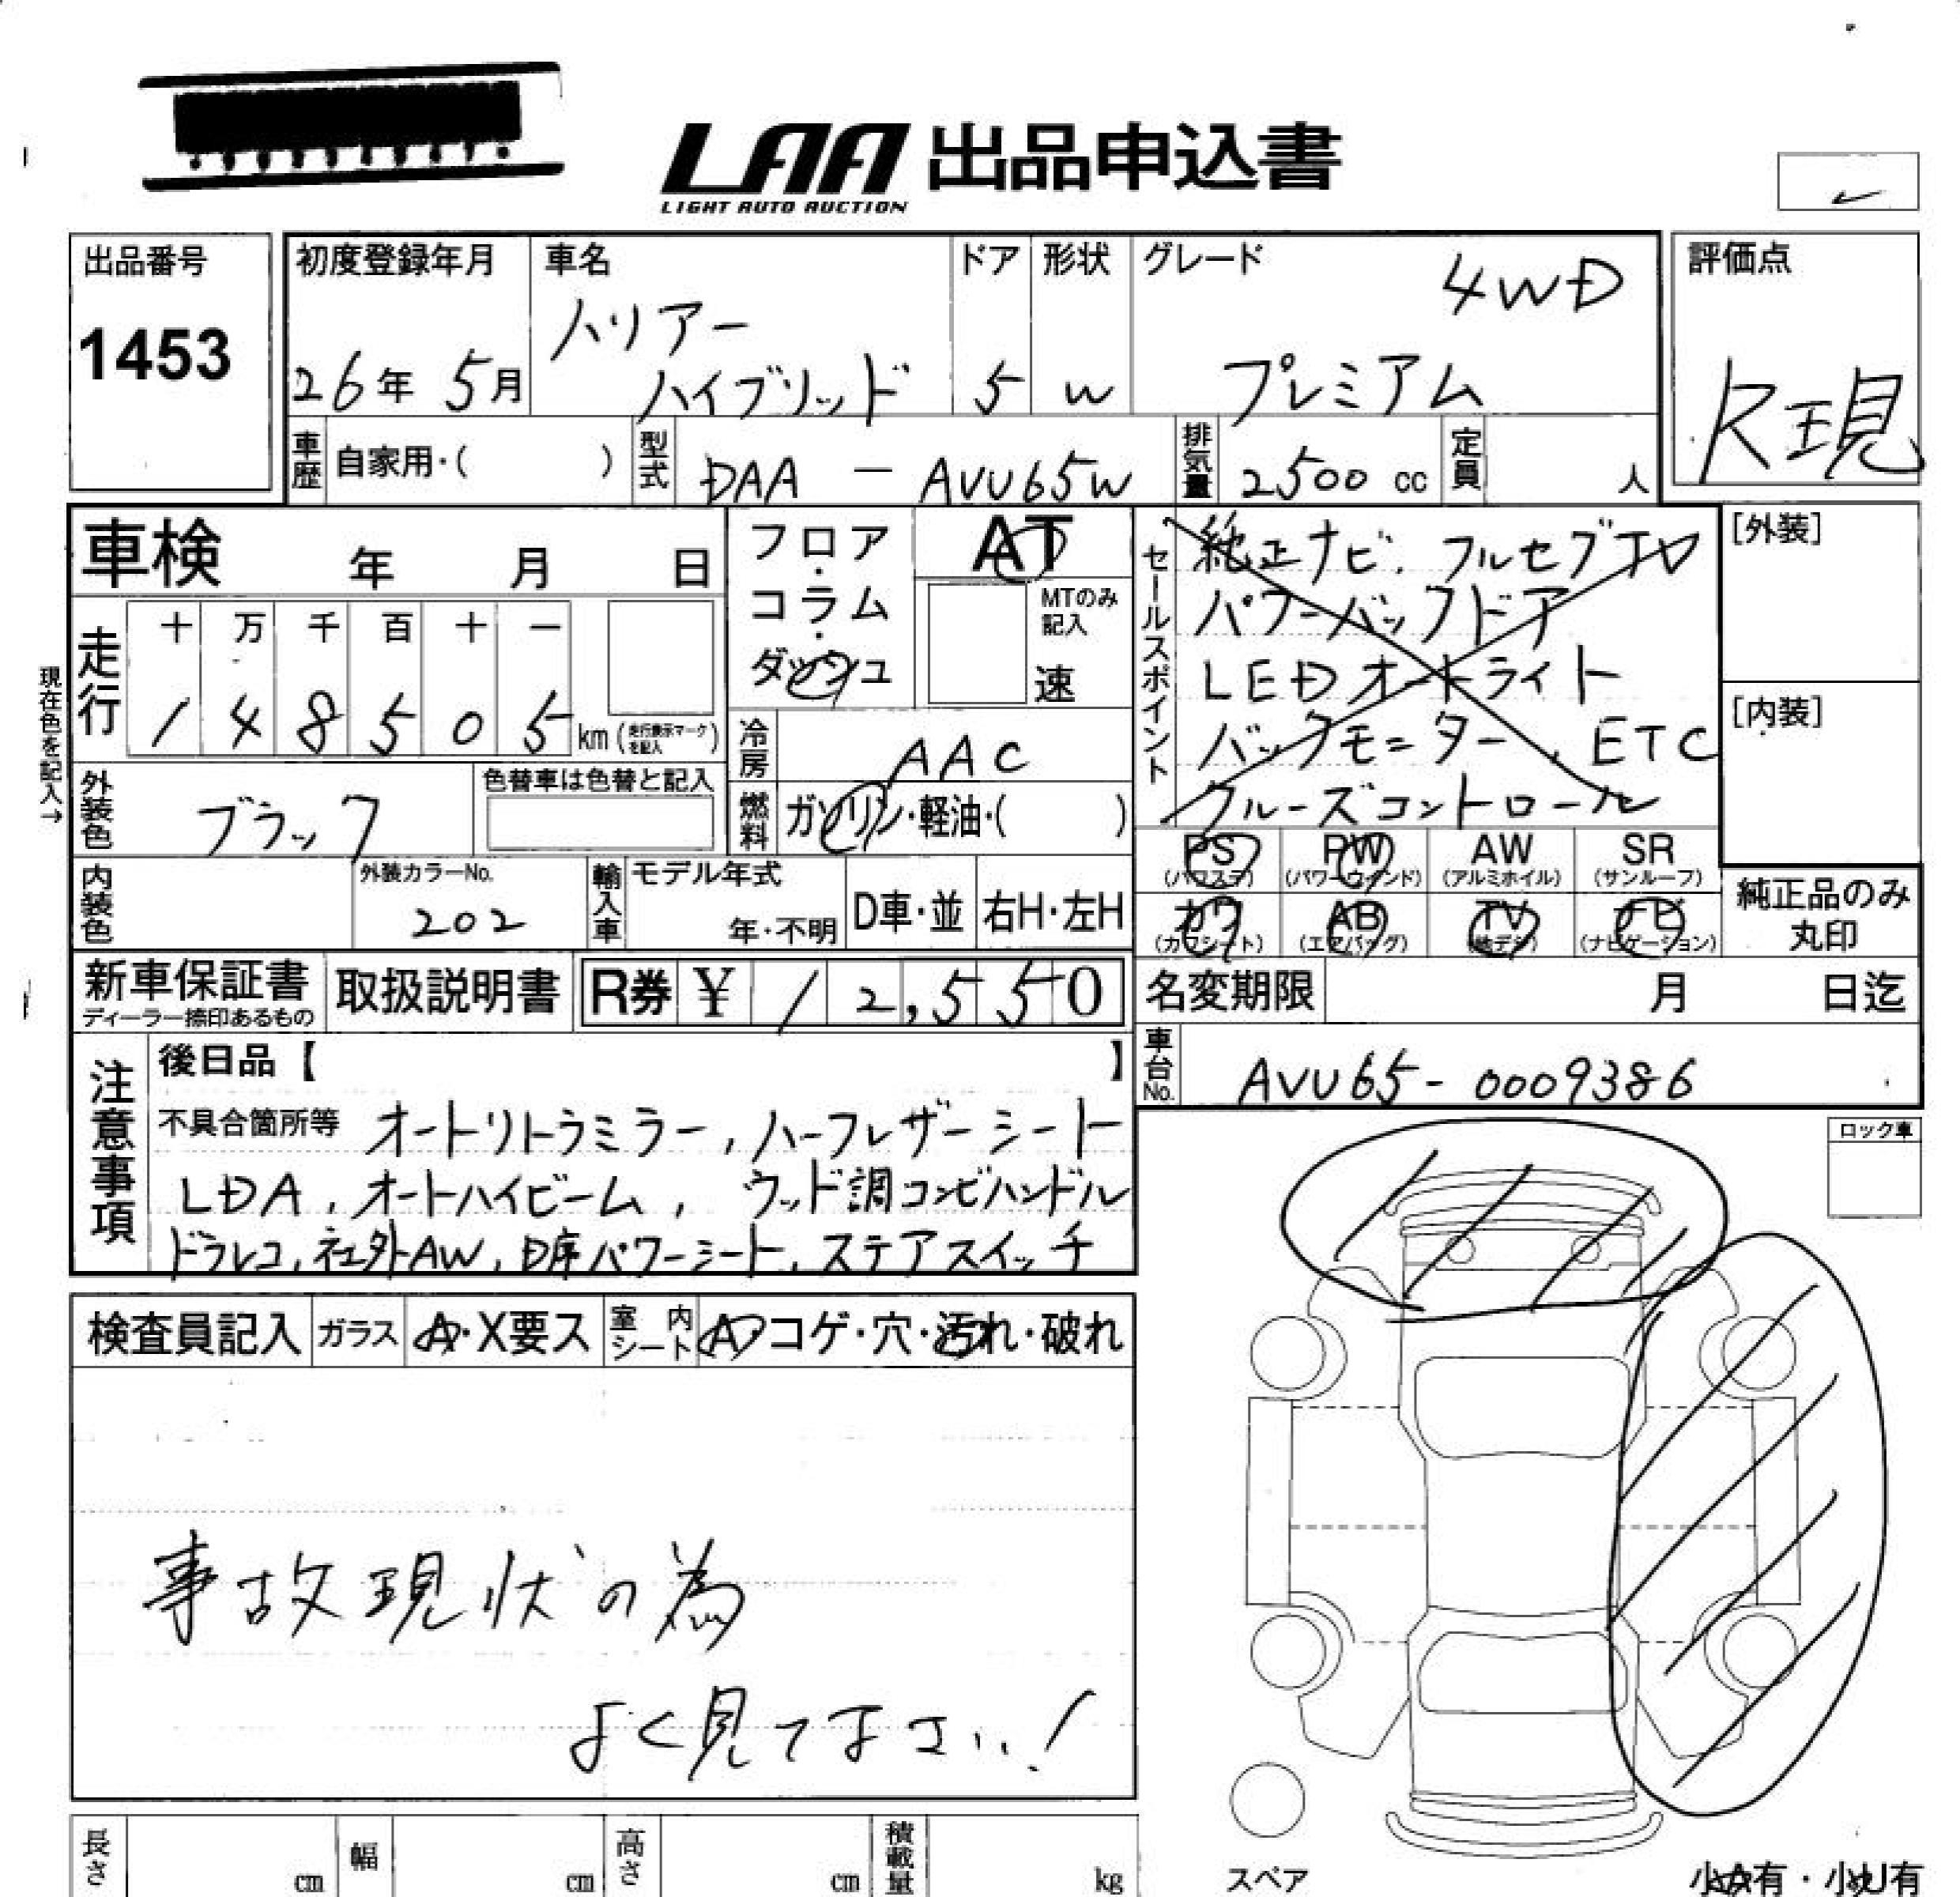 LAA 出品申込書
LIGHT AUTO AUCTION
出品番号
1453
初度登録年月
26年 5月
車名
ハリアー
ハイブリッド
ドア
5
形状
W
グレード
4WD
プレミアム
評価点
R現
車歴 自家用・( )
型式 DAA - AVU65W
排気量 2500 cc
定員 人
車検 年 月 日
現在色を記入→
走行
十 万 千 百 十 一
1 4 8 5 0 5 km (走行表示マークを記入)
フロア・コラム・ダッシュ
AT
MTのみ記入
速
冷房 AAC
燃料 ガソリン・軽油・( )
外装色 ブラック
色替車は色替と記入
内装色
外装カラーNo.
202
輸入車
モデル年式
年・不明
D車・並
右H・左H
セールスポイント
純正ナビ. フルセグTV
パワーバックドア
LEDオートライト
バックモニター, ETC
クルーズコントロール
[外装]
[内装]
PS (パワステ) PW (パワーウィンド) AW (アルミホイル) SR (サンルーフ)
カワ (カワシート) AB (エアバッグ) TV (地デジ) ナビ (ナビゲーション)
純正品のみ丸印
新車保証書
ディーラー捺印あるもの
取扱説明書
R券 ¥ 12,550
名変期限 月 日迄
車台No. AVU65-0009386
注意事項
後日品【 】
不具合箇所等 オートリトラミラー, ハーフレザーシート
LDA, オートハイビーム, ウッド調コンビハンドル
ドラレコ, 社外AW, D席パワーシート, ステアスイッチ
ロック車
検査員記入 ガラス A・X要ス 室内シート A コゲ・穴・汚れ・破れ
事故現状の為
よく見て下さい!
長さ cm 幅 cm 高さ cm 積載量 kg
スペア
小A有・小U有